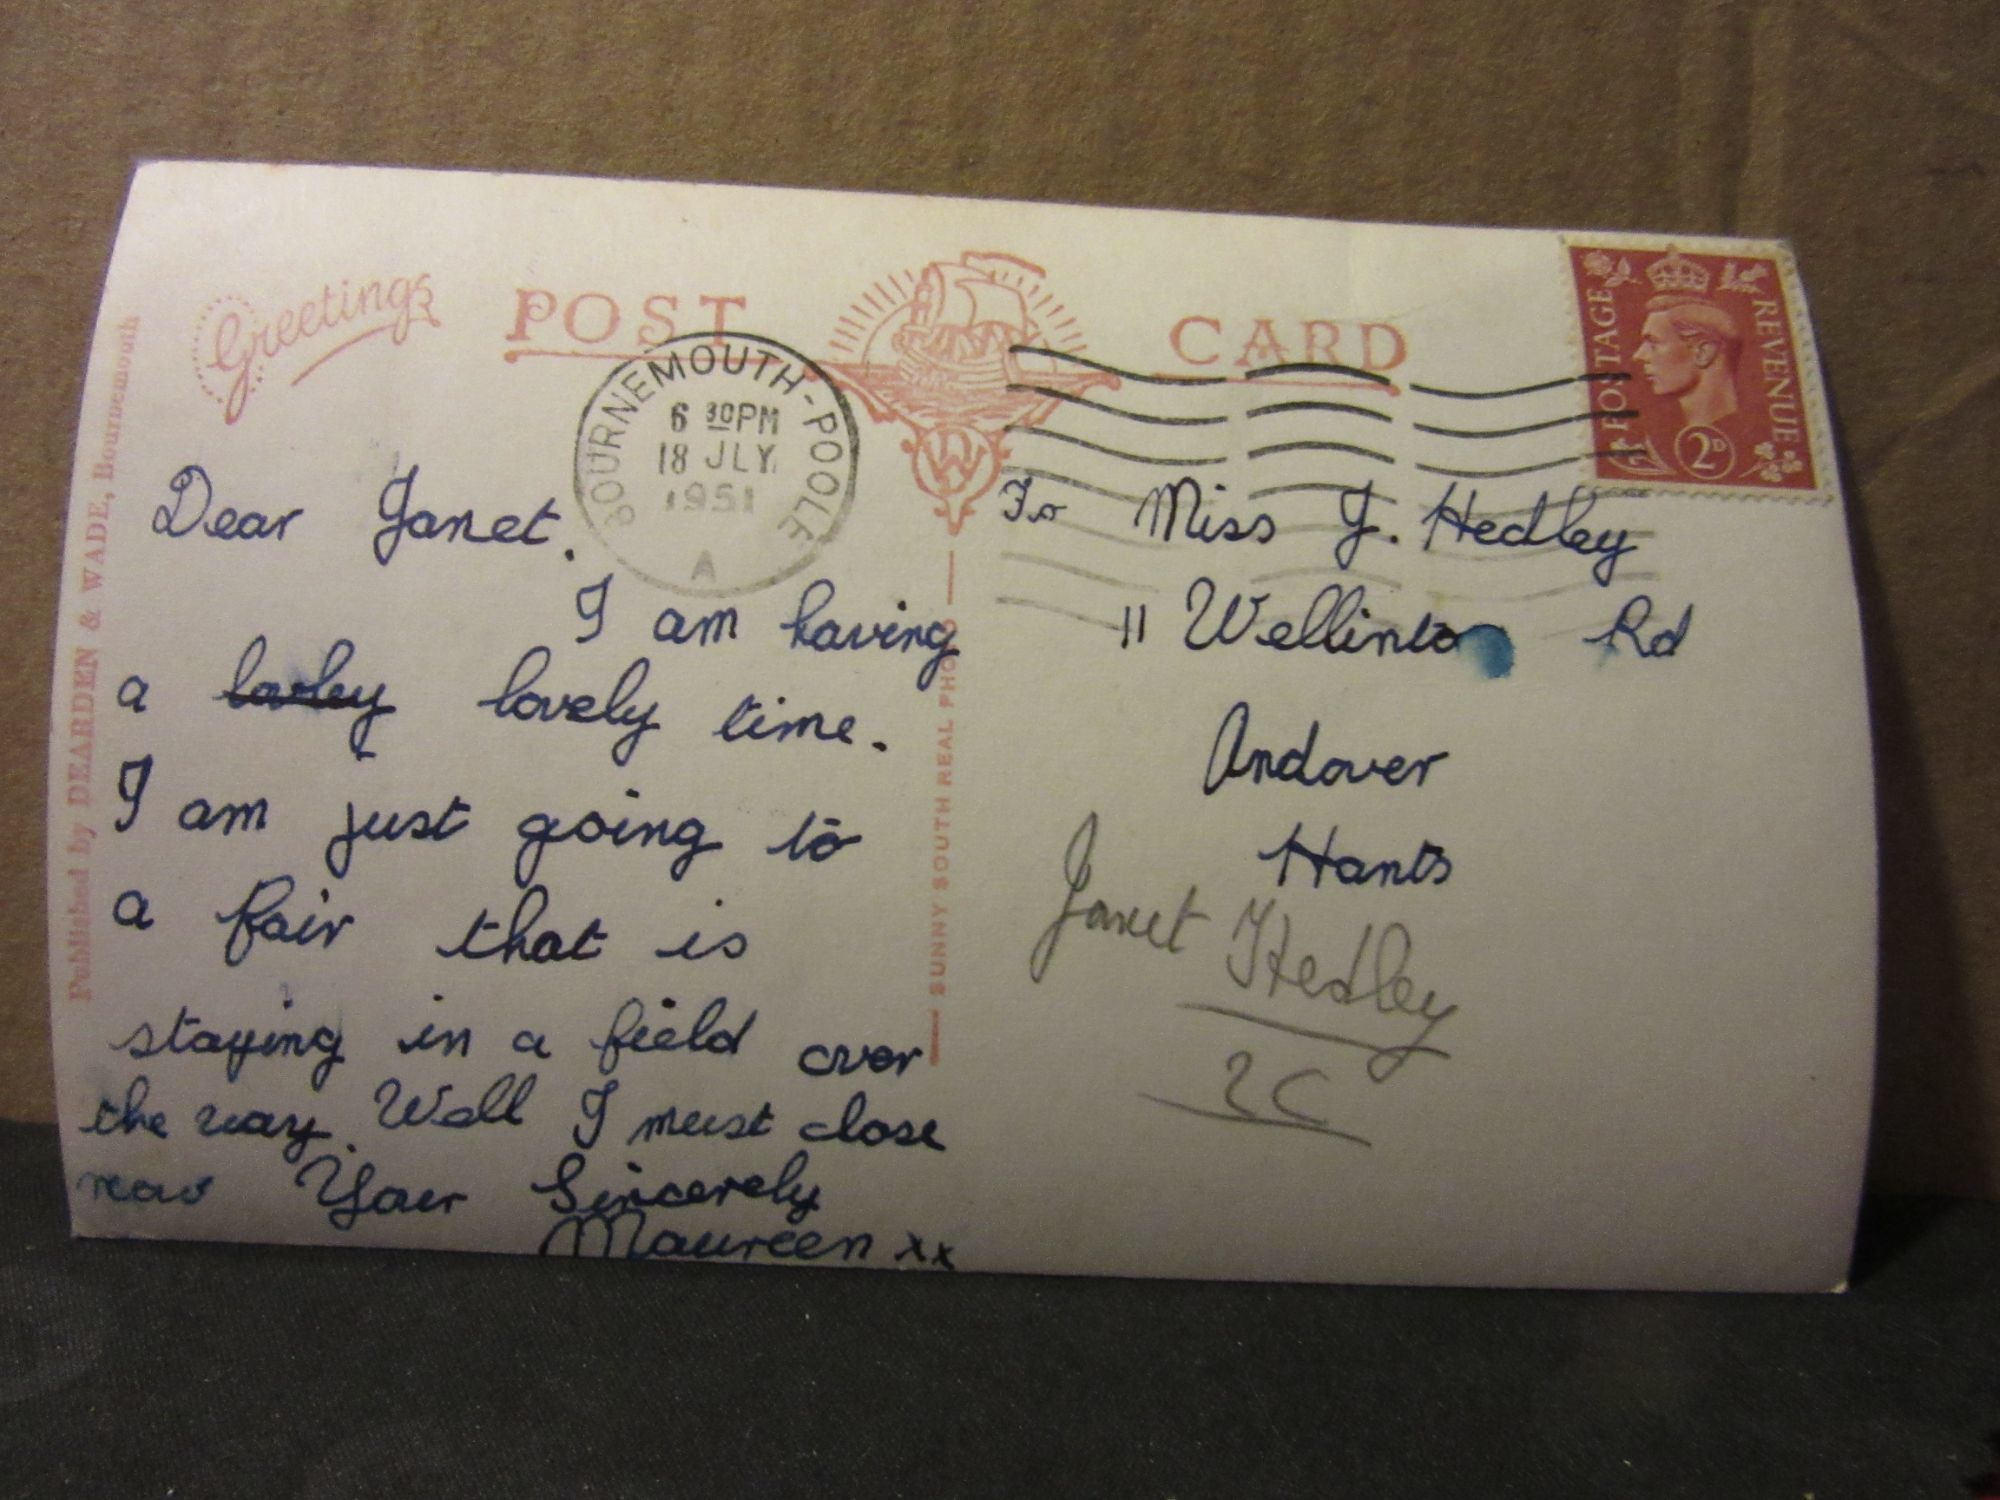 Greetings
POST CARD
Published by DEARDEN & WADE, Bournemouth
BOURNEMOUTH-POOLE
6 30PM
18 JLY
1951
A
POSTAGE REVENUE
2D
SUNNY SOUTH REAL PHOTO
Dear Janet.
I am having
a lovley lovely time.
I am just going to
a fair that is
staying in a field over
the way. Well I must close
now Your Sincerely
Maureen xx
To Miss J. Hedley
11 Wellinto Rd
Andover
Hants
Janet Hedley
2C